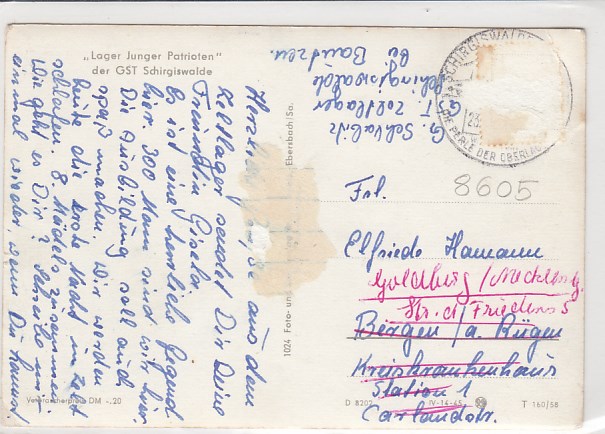 „Lager Junger Patrioten"
der GST Schirgiswalde
Herzliche Grüße aus dem
Zeltlager sendet Dir Deine
Freundin Gisela.
Es ist eine herrliche Gegend
hier. 300 Mann sind wir hier.
Die Ausbildung soll auch
Spaß machen. Wir werden
heute die erste Nacht im Zelt
schlafen. 8 Mädels zusammen.
Wie geht es Dir?
einmal wieder, wenn Du kannst
Verbraucherpreis DM -.20
1024 Foto- und
Ebersbach/Sa.
GST. Zeltlager
Schirgiswalde
bei Bautzen
SCHIRGISWALDE
23.
DIE PERLE DER OBERLAU
8605
Frl.
Elfriede Hamann
Goldberg/Mecklenbg.
Str. d. Friedens 5
Bergen / a. Rügen
Kreiskrankenhaus
Station 1
D 8202
IV-14-45
T 160/58